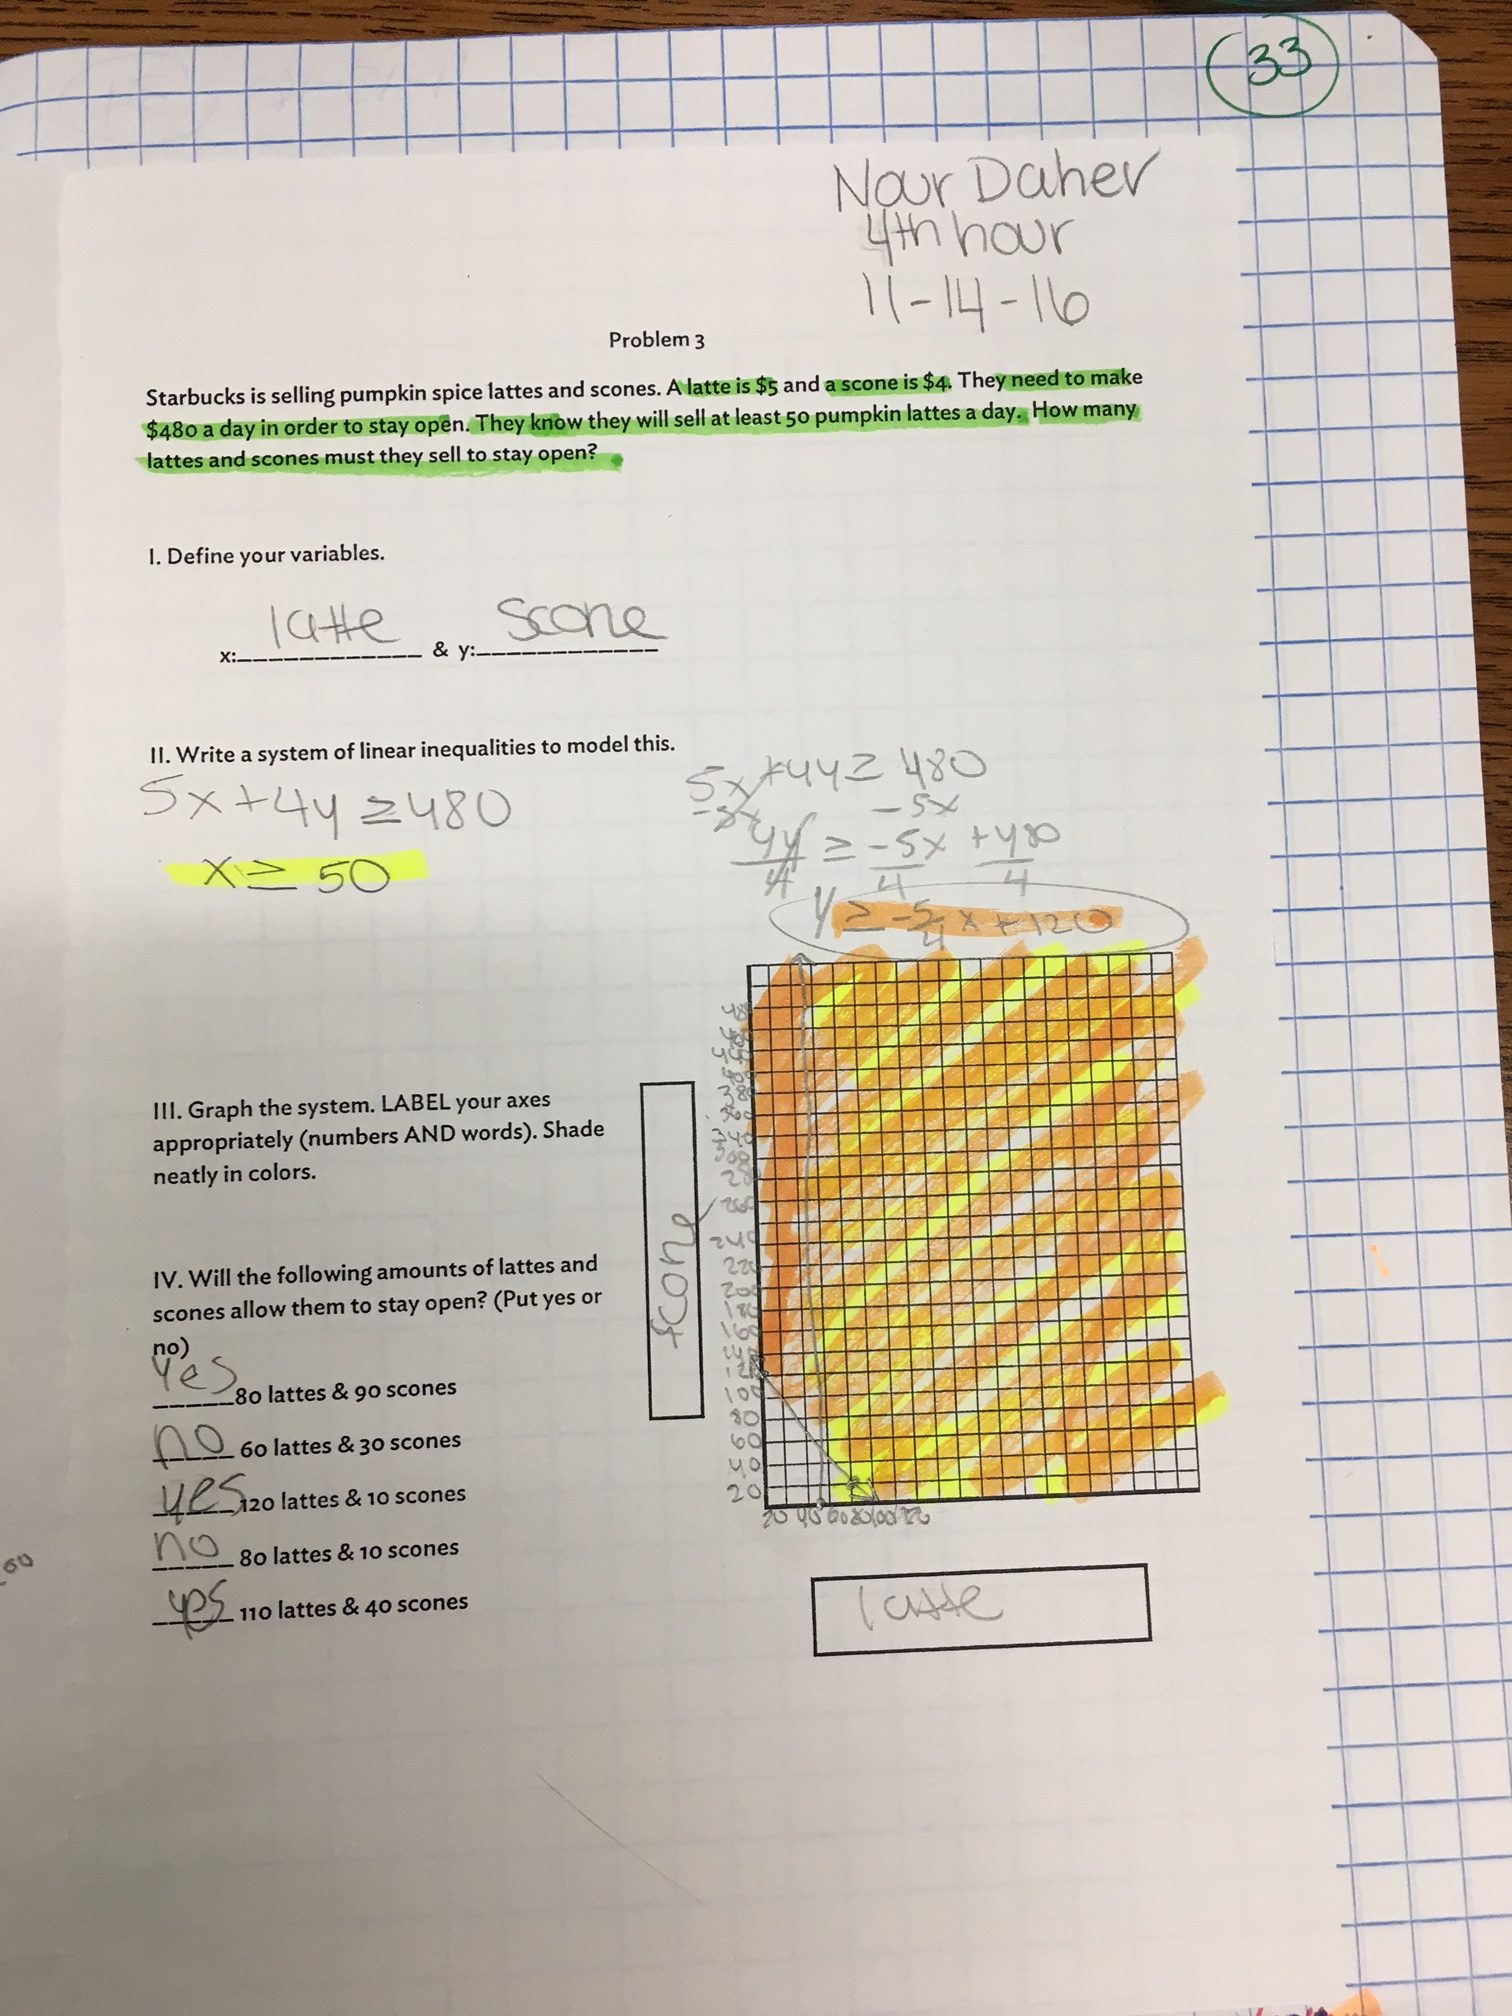 33
Nour Daher
4th hour
11-14-16
Problem 3
Starbucks is selling pumpkin spice lattes and scones. A latte is $5 and a scone is $4. They need to make
$480 a day in order to stay open. They know they will sell at least 50 pumpkin lattes a day. How many
lattes and scones must they sell to stay open?
I. Define your variables.
x: latte & y: scone
II. Write a system of linear inequalities to model this.
5x+4y≥480
x≥50
5x+4y≥480
-5x -5x
4y≥-5x+480
4 4 4
y≥-5/4x+120
III. Graph the system. LABEL your axes
appropriately (numbers AND words). Shade
neatly in colors.
IV. Will the following amounts of lattes and
scones allow them to stay open? (Put yes or
no)
yes 80 lattes & 90 scones
no 60 lattes & 30 scones
yes 120 lattes & 10 scones
no 80 lattes & 10 scones
yes 110 lattes & 40 scones
scone
260
240
220
200
180
160
100
80
60
40
20
20 40 60 80 100 120
latte